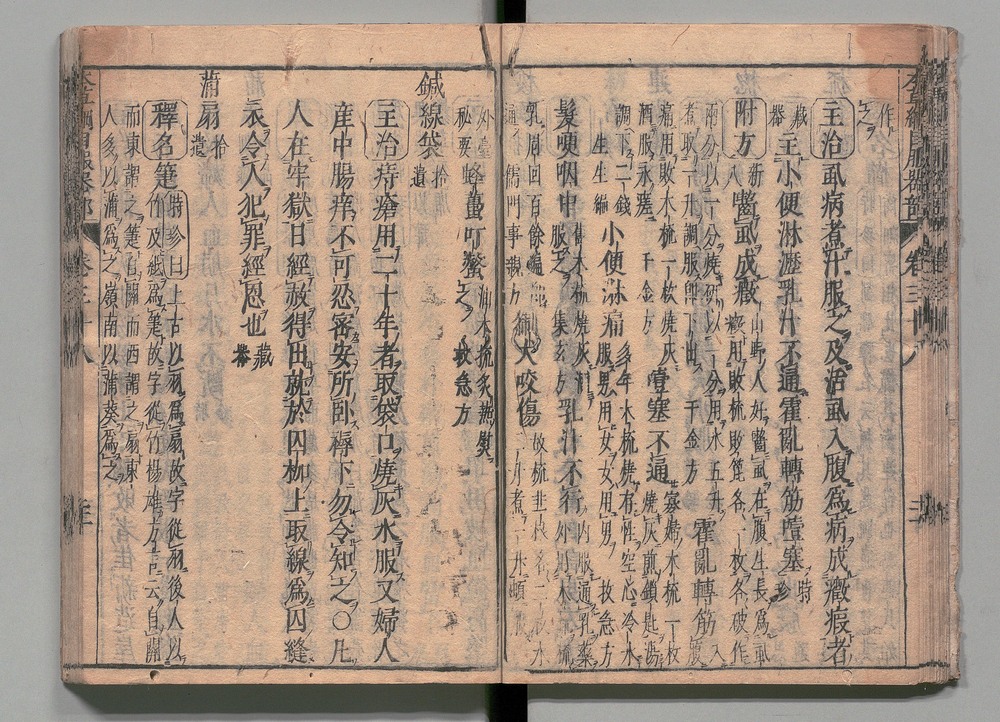 作
之
主治虱病煮汁服之及治虱入腹爲病成癥瘕者
藏器主小便淋瀝乳汁不通霍亂轉筋噎塞時珍
附方新八齧虱成癥山野人好齧虱在腹生長爲虱
癥用敗梳敗篦各一枚各破作
兩分以一分燒研以一分用水五升
煮取一升調服即下出千金方霍亂轉筋入腹
痛用敗木梳一枚燒灰
酒服永瘥千金方噎塞不通寡婦木梳一枚
燒灰煎鎖匙湯
調下二錢
生生編小便淋痛多年木梳燒存性空心冷水
服男用女女用男救急方
髮哽咽中
乳汁不行內服通乳藥
外用木梳
乳周回百餘遍
儒門事親方犬咬傷故梳韭根各二枚水
二升煮一升頓服
外臺
秘要蜂蠆叮螫油木梳炙熱熨
之救急方
鍼線袋拾遺
主治痔瘡用二十年者取袋口燒灰水服又婦人
産中腸痒不可忍密安所臥褥下勿令知之〇凡
人在牢獄日經赦得出就於囚枷上取線爲囚縫
衣令人犯罪經恩也藏器
蒲扇拾遺
釋名箑時珍曰上古以羽爲扇故字從羽後人以
竹及紙爲箑故字從竹楊雄方言云自關
而東謂之箑自關而西謂之扇東
人多以蒲爲之嶺南以蒲葵爲之